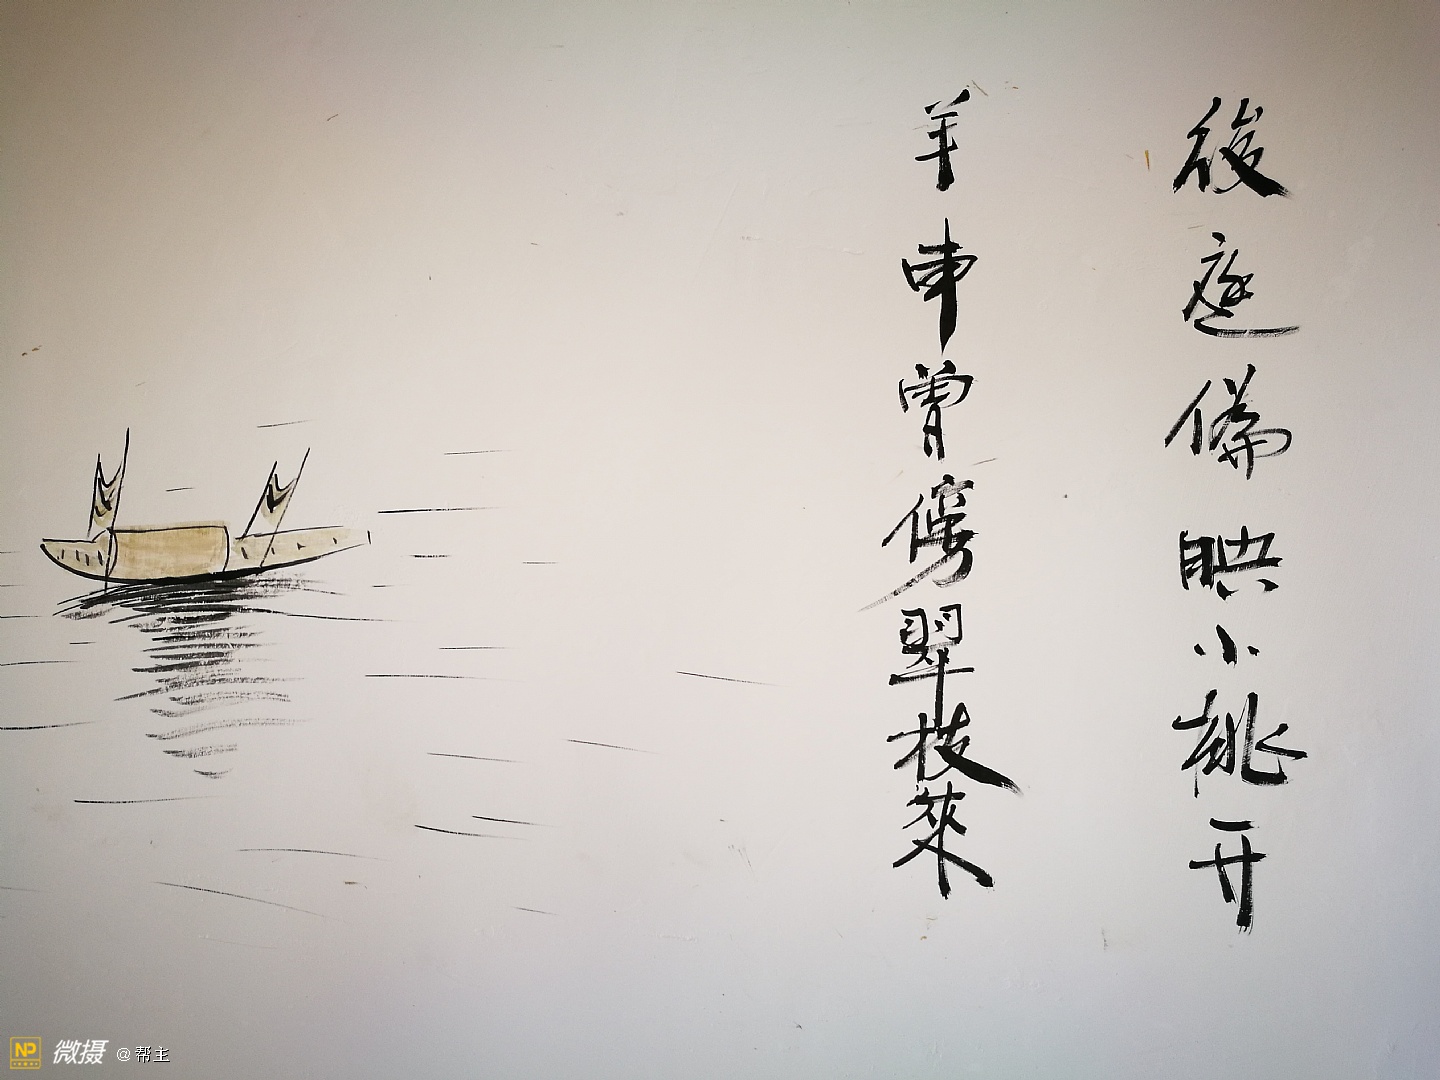 後庭偏映小桃开
羊申曾窃翠枝来
NP 微摄 @帮主